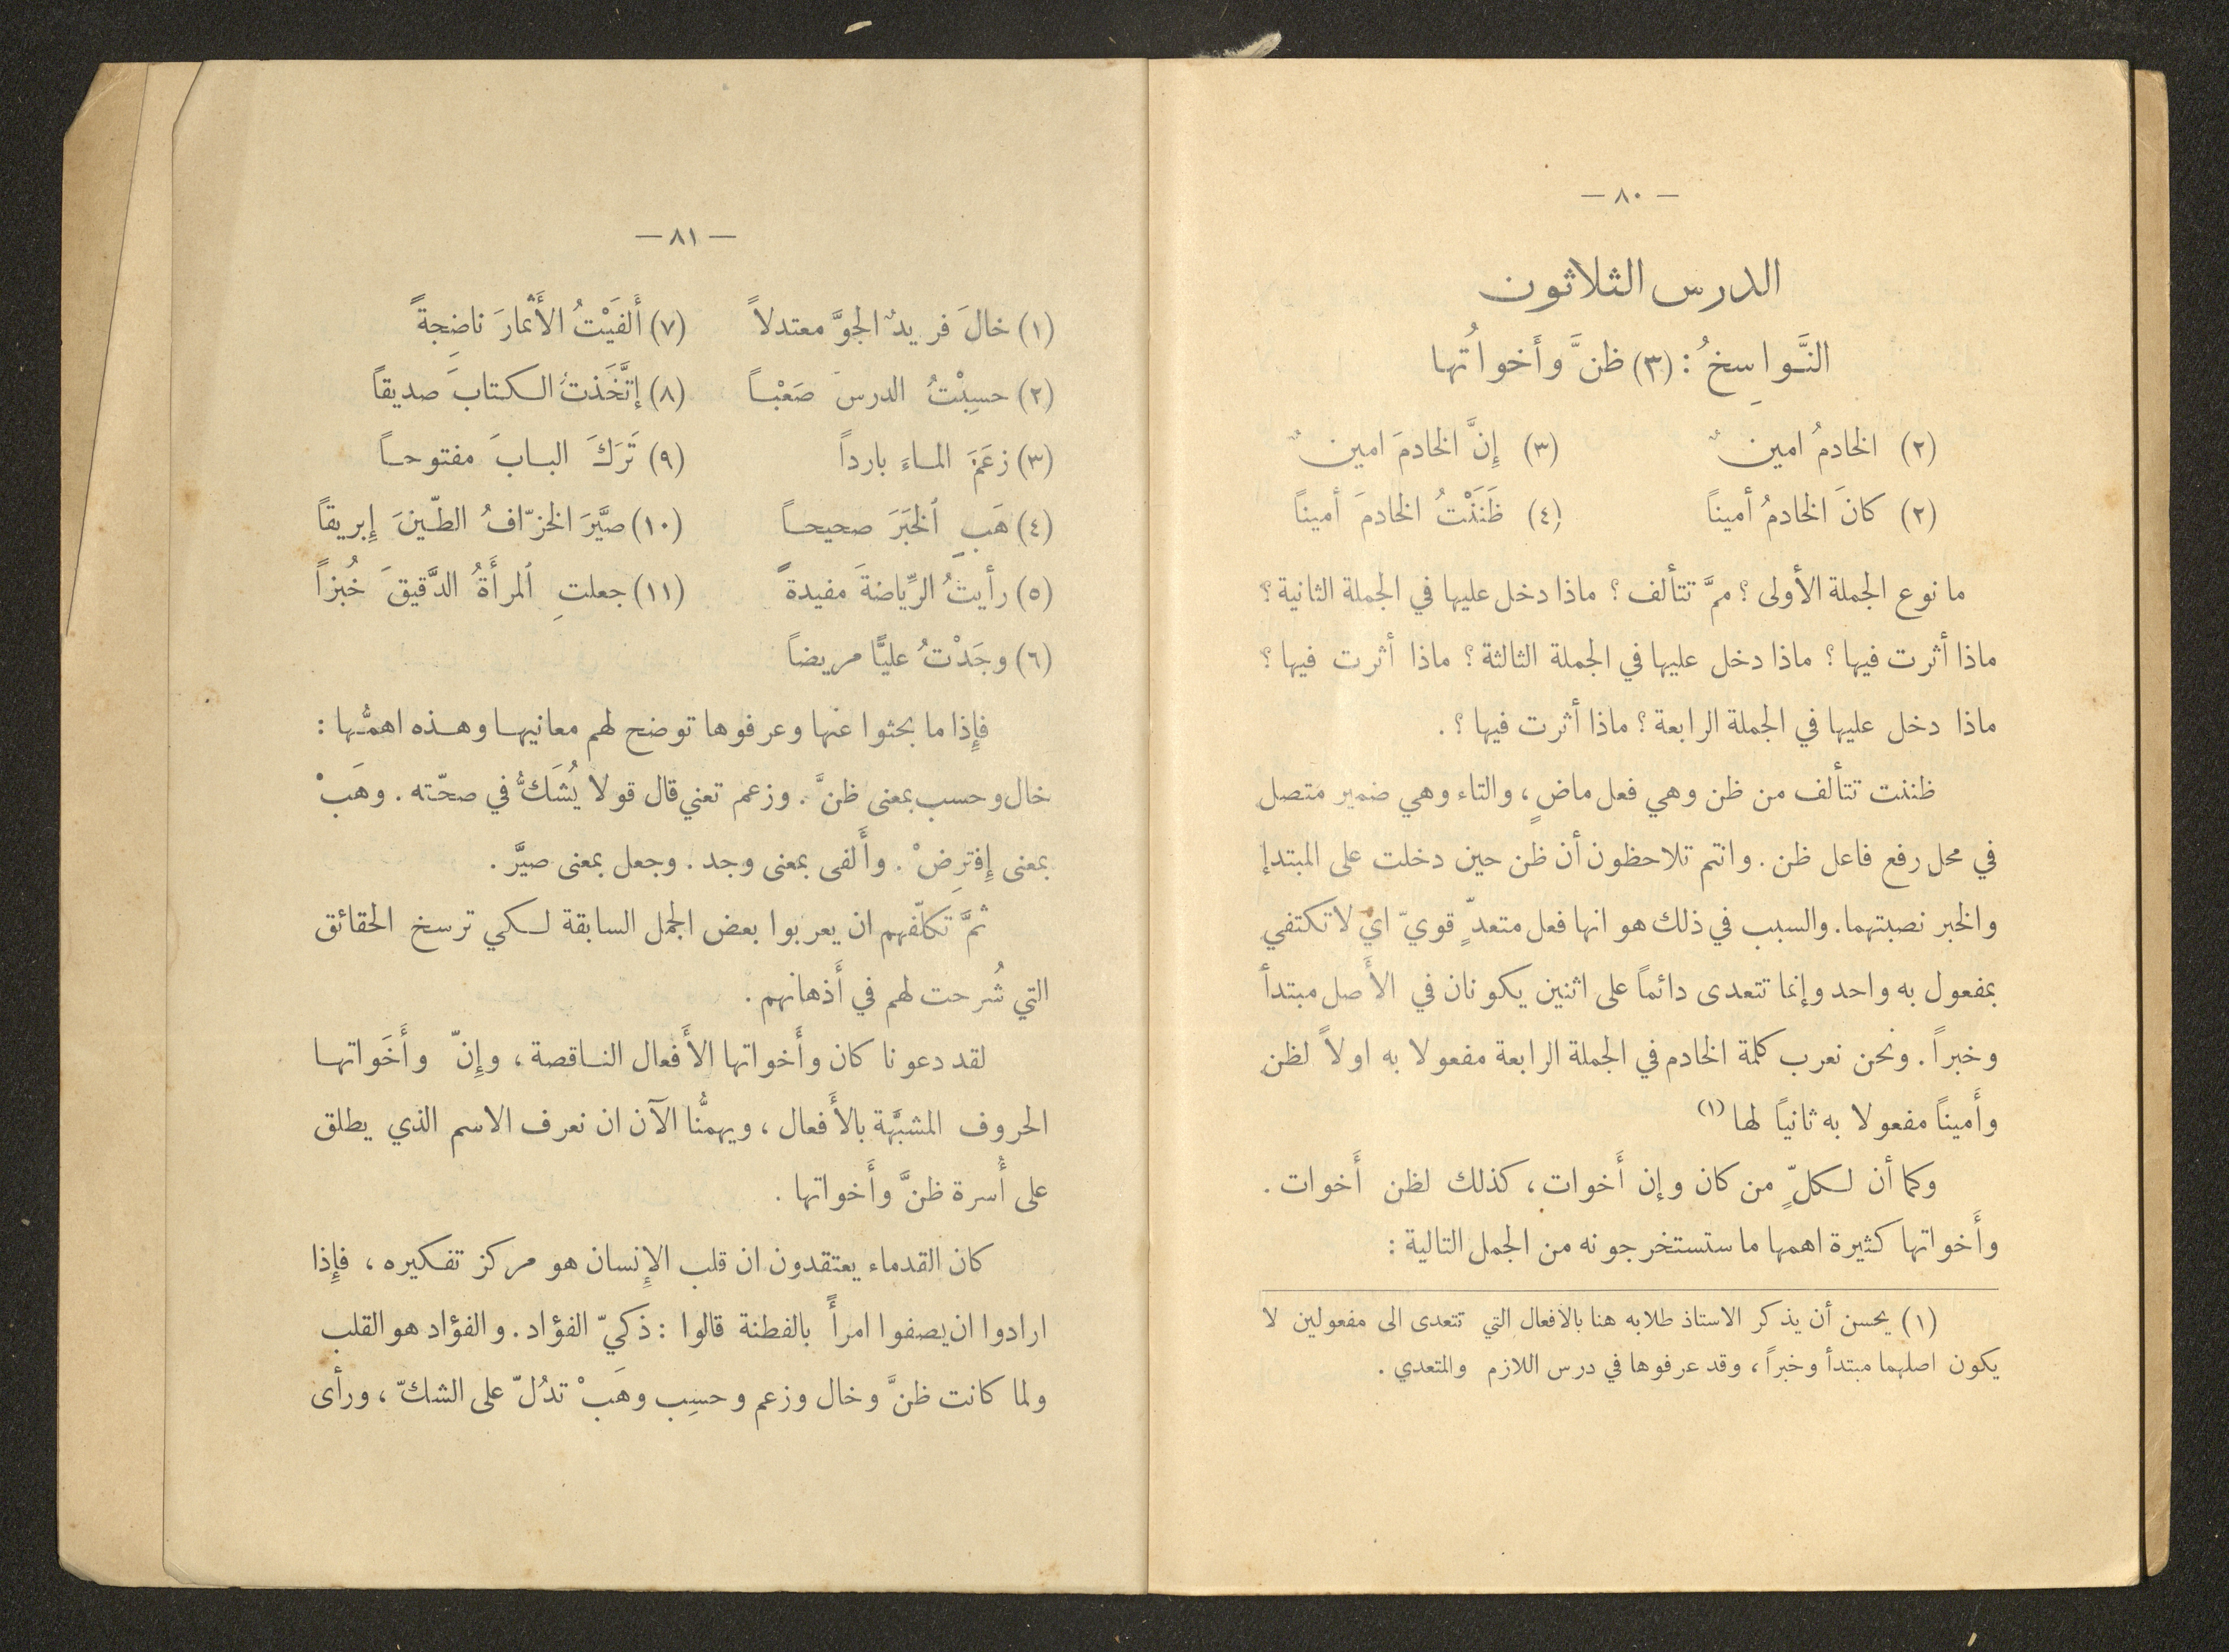 — ٨٠ —
الدرس الثلاثون
النَّواسِخُ : (٣) ظنَّ وأَخواتُها
(٢) الخادمُ امينٌ (٣) إِنَّ الخادمَ امينٌ
(٢) كانَ الخادمُ أميناً (٤) ظَنَنْتُ الخادمَ أميناً
ما نوع الجملة الأولى ؟ ممَّ تتألف ؟ ماذا دخل عليها في الجملة الثانية ؟
ماذا أثرت فيها ؟ ماذا دخل عليها في الجملة الثالثة ؟ ماذا أثرت فيها ؟
ماذا دخل عليها في الجملة الرابعة ؟ ماذا أثرت فيها ؟ .
ظننت تتألف من ظن وهي فعل ماضٍ ، والتاء وهي ضمير متصل
في محل رفع فاعل ظن . وانتم تلاحظون أن ظن حين دخلت على المبتدإ
والخبر نصبتهما . والسبب في ذلك هو انها فعل متعدٍّ قويّ اي لا تكتفي
بمفعول به واحد وإنما تتعدى دائماً على اثنين يكونان في الأَصل مبتدأ
وخبراً . ونحن نعرب كلمة الخادم في الجملة الرابعة مفعولا به اولاً لظن
وأَميناً مفعولا به ثانياً لها (١)
وكما أن لكلٍّ من كان وإن أَخوات ، كذلك لظن أَخوات .
وأَخواتها كثيرة اهمها ما ستستخرجونه من الجمل التالية :
(١) يحسن أن يذكر الاستاذ طلابه هنا بالافعال التي تتعدى الى مفعولين لا
يكون اصلهما مبتدأ وخبراً ، وقد عرفوها في درس اللازم والمتعدي .
— ٨١ —
(١) خالَ فريدٌ الجوَّ معتدلاً (٧) أَلفَيْتُ الأَثمارَ ناضِجةً
(٢) حسِبْتُ الدرسَ صَعْباً (٨) إتَّخَذتُ الكتابَ صديقاً
(٣) زعَمَ الماءَ بارداً (٩) تَرَكَ البابَ مفتوحاً
(٤) هَبِ ٱلخَبَرَ صحيحاً (١٠) صيَّرَ الخزّافُ الطّينَ إِبريقاً
(٥) رأيتُ الرِّياضةَ مفيدةً (١١) جعلتِ ٱلمرأَةُ الدَّقيقَ خُبزاً
(٦) وجَدْتُ عليًّا مريضاً
فإِذا ما بحثوا عنها وعرفوها توضح لهم معانيها وهذه اهمُّها :
خال وحسب بمعنى ظنَّ . وزعم تعني قال قولا يُشَكُّ في صحّته . وهَبْ
بمعنى إِفترِضْ . وأَلفى بمعنى وجد . وجعل بمعنى صيَّر .
ثمَّ تكلّفهم ان يعربوا بعض الجمل السابقة لكي ترسخ الحقائق
التي شُرحت لهم في أَذهانهم .
لقد دعونا كان وأَخواتها الأَفعال الناقصة ، وإِنّ وأَخَواتها
الحروف المشبَّهة بالأَفعال ، ويهمُّنا الآن ان نعرف الاسم الذي يطلق
على أُسرة ظنَّ وأَخواتها .
كان القدماء يعتقدون ان قلب الإِنسان هو مركز تفكيره ، فإِذا
ارادوا ان يصفوا امرأً بالفطنة قالوا : ذكيّ الفؤاد . والفؤاد هو القلب
ولما كانت ظنَّ وخال وزعم وحسِب وهَبْ تدُلّ على الشكّ ، ورأى